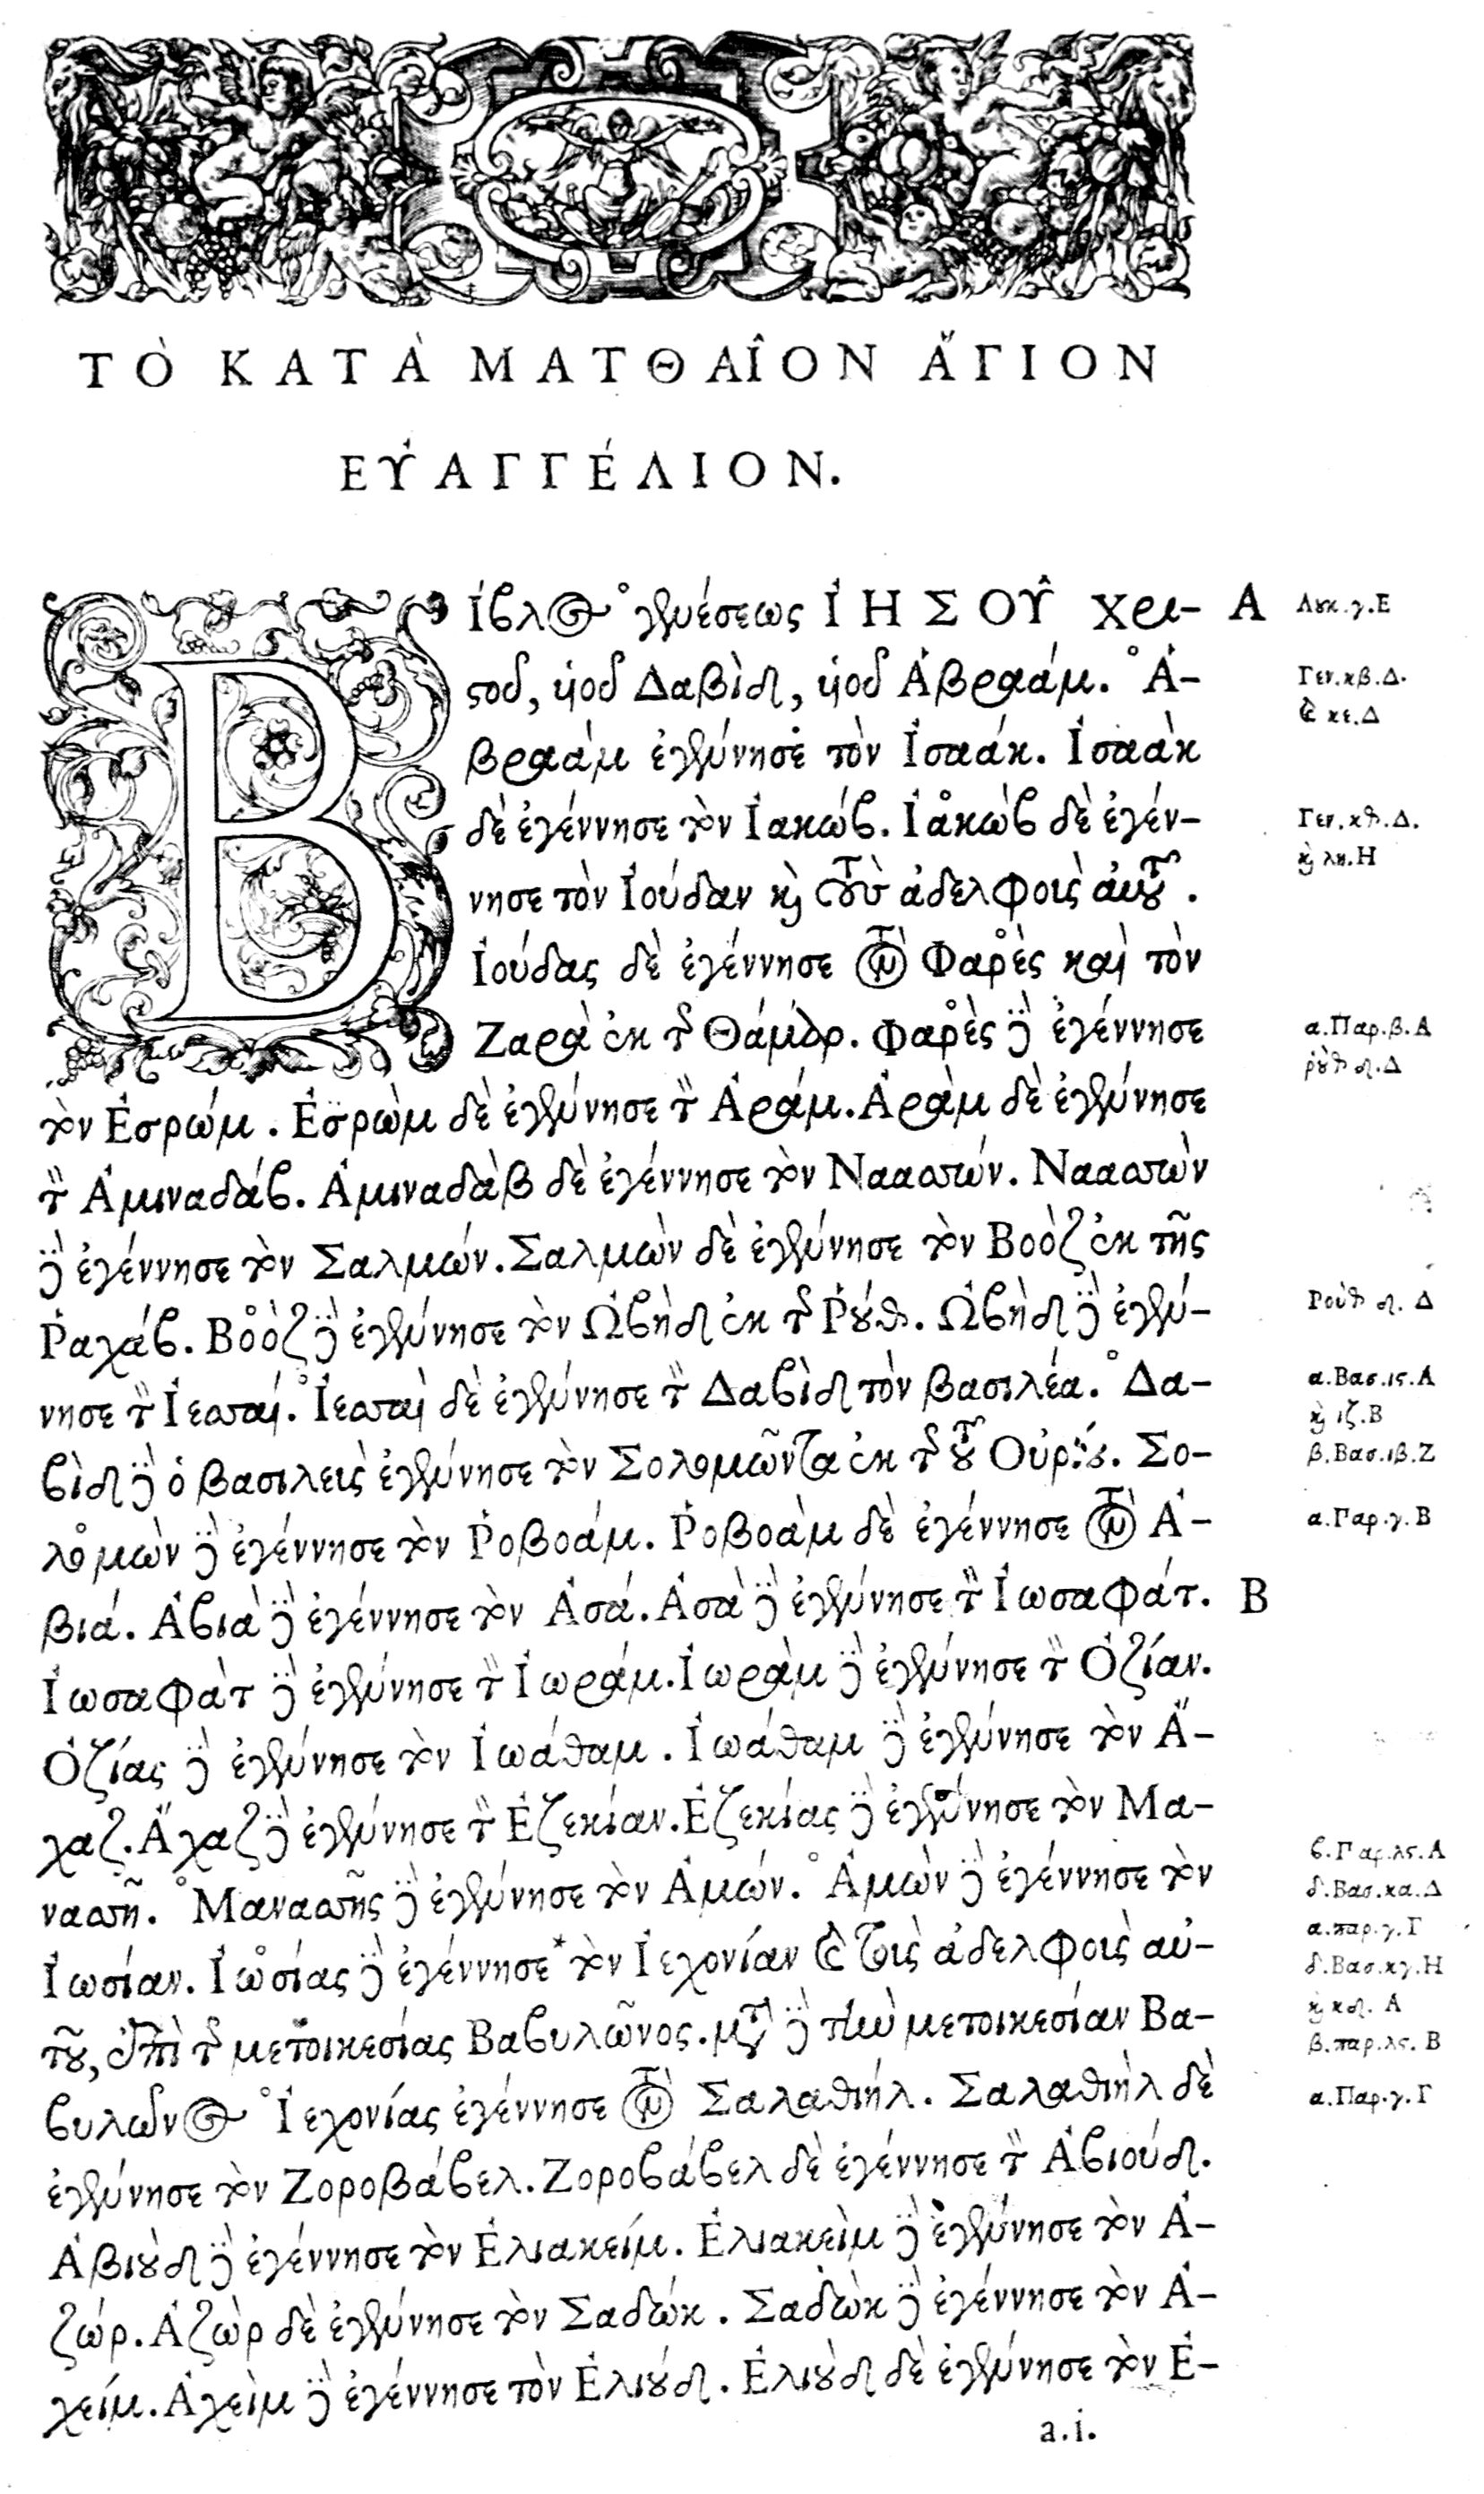 ΤῸ ΚΑΤᾺ ΜΑΤΘΑῖΟΝ ἍΓΙΟΝ
ΕΥ̓ΑΓΓΈΛΙΟΝ.
Βίβλος γενέσεως ἸΗΣΟΥ͂ Χρι-
στοῦ, υἱοῦ Δαβὶδ, υἱοῦ Ἀβραάμ. Ἀ-
βραὰμ ἐγέννησε τὸν Ἰσαάκ. Ἰσαὰκ
δὲ ἐγέννησε τὸν Ἰακώβ. Ἰακὼβ δὲ ἐγέν-
νησε τὸν Ἰούδαν καὶ τοὺς ἀδελφοὺς αὐτοῦ.
Ἰούδας δὲ ἐγέννησε τὸν Φαρὲς καὶ τὸν
Ζαρὰ ἐκ τῆς Θάμαρ. Φαρὲς δὲ ἐγέννησε
τὸν Ἐσρώμ. Ἐσρὼμ δὲ ἐγέννησε τὸν Ἀράμ. Ἀρὰμ δὲ ἐγέννησε
τὸν Ἀμιναδάβ. Ἀμιναδὰβ δὲ ἐγέννησε τὸν Ναασσών. Ναασσὼν
δὲ ἐγέννησε τὸν Σαλμών. Σαλμὼν δὲ ἐγέννησε τὸν Βοὸζ ἐκ τῆς
Ῥαχάβ. Βοὸζ δὲ ἐγέννησε τὸν Ὠβὴδ ἐκ τῆς Ῥούθ. Ὠβὴδ δὲ ἐγέν-
νησε τὸν Ἰεσσαί. Ἰεσσαὶ δὲ ἐγέννησε τὸν Δαβὶδ τὸν βασιλέα. Δα-
βὶδ δὲ ὁ βασιλεὺς ἐγέννησε τὸν Σολομῶντα ἐκ τῆς τοῦ Οὐρίου. Σο-
λομὼν δὲ ἐγέννησε τὸν Ῥοβοάμ. Ῥοβοὰμ δὲ ἐγέννησε τὸν Ἀ-
βιά. Ἀβιὰ δὲ ἐγέννησε τὸν Ἀσά. Ἀσὰ δὲ ἐγέννησε τὸν Ἰωσαφάτ.
Ἰωσαφὰτ δὲ ἐγέννησε τὸν Ἰωράμ. Ἰωρὰμ δὲ ἐγέννησε τὸν Ὀζίαν.
Ὀζίας δὲ ἐγέννησε τὸν Ἰωάθαμ. Ἰωάθαμ δὲ ἐγέννησε τὸν Ἄ-
χαζ. Ἄχαζ δὲ ἐγέννησε τὸν Ἐζεκίαν. Ἐζεκίας δὲ ἐγέννησε τὸν Μα-
νασσῆ. Μανασσῆς δὲ ἐγέννησε τὸν Ἀμών. Ἀμὼν δὲ ἐγέννησε τὸν
Ἰωσίαν. Ἰωσίας δὲ ἐγέννησε *τὸν Ἰεχονίαν καὶ τοὺς ἀδελφοὺς αὐ-
τοῦ, ἐπὶ τῆς μετοικεσίας Βαβυλῶνος. μετὰ δὲ τὴν μετοικεσίαν Βα-
βυλῶνος Ἰεχονίας ἐγέννησε τὸν Σαλαθιήλ. Σαλαθιὴλ δὲ
ἐγέννησε τὸν Ζοροβάβελ. Ζοροβάβελ δὲ ἐγέννησε τὸν Ἀβιούδ.
Ἀβιοὺδ δὲ ἐγέννησε τὸν Ἐλιακείμ. Ἐλιακεὶμ δὲ ἐγέννησε τὸν Ἀ-
ζώρ. Ἀζὼρ δὲ ἐγέννησε τὸν Σαδώκ. Σαδὼκ δὲ ἐγέννησε τὸν Ἀ-
χείμ. Ἀχεὶμ δὲ ἐγέννησε τὸν Ἐλιούδ. Ἐλιοὺδ δὲ ἐγέννησε τὸν Ἐ-
a.i.
Α
Β
Λουκ.γ.Ε
Γεν.κβ.Δ.
καὶ κε.Δ
Γεν.κθ.Δ.
καὶ λη.Η
α.Παρ.β.Α
ῥοὺθ δ.Δ
Ῥοὺθ δ. Δ
α.Βασ.ις.Α
καὶ ιζ.Β
β.Βασ.ιβ.Ζ
α.Παρ.γ.Β
β.Παρ.λς.Α
δ.Βασ.κα.Δ
α.παρ.γ.Γ
δ.Βασ.κγ.Η
καὶ κδ. Α
β.παρ.λς. Β
α.Παρ.γ.Γ